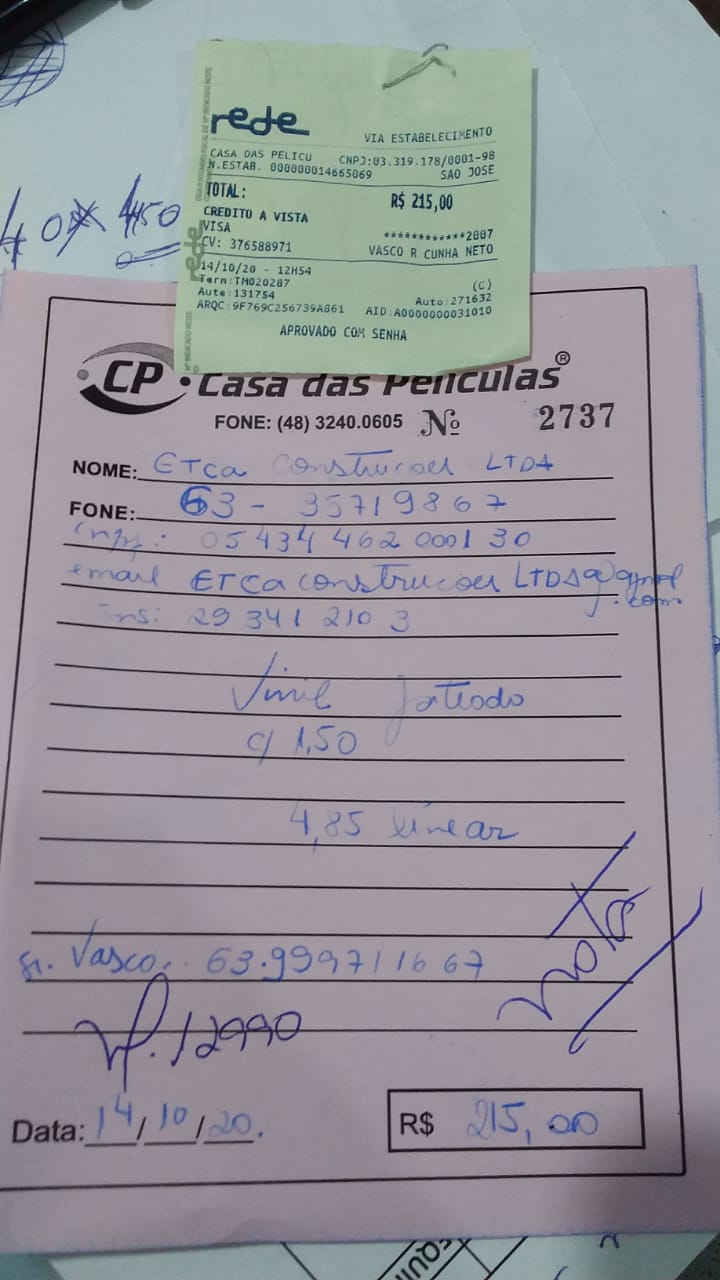 40 x 4,50
rede
VIA ESTABELECIMENTO
CASA DAS PELICU CNPJ:03.319.178/0001-98
N.ESTAB. 000000014665069 SAO JOSE
TOTAL: R$ 215,00
CREDITO A VISTA
VISA ************2007
CV: 376588971 VASCO R CUNHA NETO
14/10/20 - 12H54 (C)
Term:TM020287 Auto:271632
Aute:131754
ARQC:9F769C256739A861 AID:A0000000031010
APROVADO COM SENHA
CP Casa das Películas ®
FONE: (48) 3240.0605 Nº 2737
NOME: ETCA Construcoes LTDA
FONE: 63 - 35719867
cnpj: 05 434 462 0001 30
email ETCAconstrucoesLTDA@gmail
.com
Ins: 29 341 210 3
Vinil Jateado
c/ 1,50
4,85 linear
Sr. Vasco. 63.999711667
nota
nf. 12990
Data: 14/10/20.
R$ 215,00